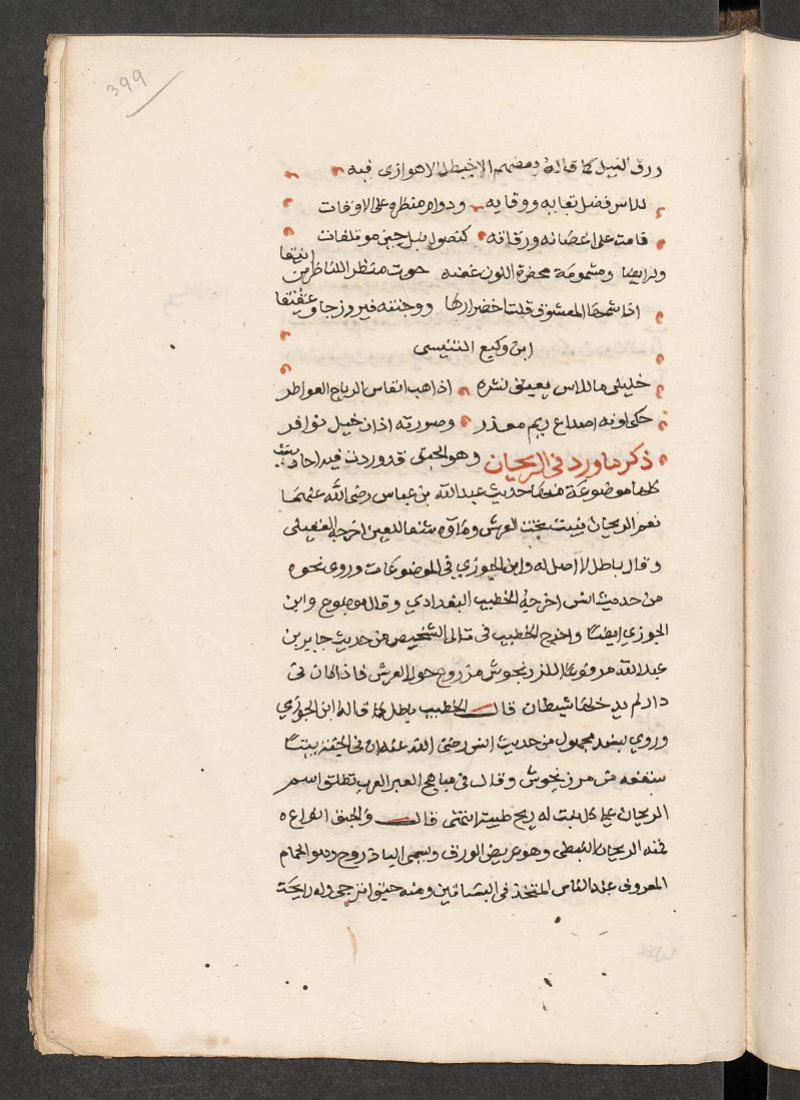 399
ورق النيل كما قاله ومضمهم الاخيطل الاهوازى فيه
للاس فضل بقايه ووفايه ودوام منظره على الاوقات
قامت على اغصانه ورقاته كنصول نبل جبن موتلفات
ولد ايضا ومشمومة مخضرة اللون غضه حوت منظر اللناظرين انيقا
اذا شمها المعشوق قلت اخضرارها ووجنته فيروزجا وعقيقا
ابن وكيع التنيسى
خليلى ما للاس يعبق نشره اذا هب انفاس الرياح العواطر
حكى لونه اصداغ ريم معذر وصورته اذان خيل نوافر
ذكر ما ورد فى الريحان وهو الحبق قد وردت فيه احاديث
كلها موضوعة منها حديث عبد الله بن عباس رضى الله عنهما
نعم الريحان ينبت تحت العرش وماؤه شفا للعين اخرجه العقيلى
وقال باطل لا اصل له وابن الجوزي فى الموضوعات وروى نحوه
من حديث انس اخرجه الخطيب البغدادي وقال موضوع وابن
الجوزي ايضا واخرج الخطيب فى تالى التلخيص من حديث جابر بن
عبد الله مرفوعا المرزنجوش مزروع حول العرش فاذا كان فى
دار لم يدخلها شيطان قال الخطيب باطل كما قاله ابن الجوزي
وروي بسند مجهول من حديث انس رضى الله عنه ان فى الجنة بيتا
سقفه من مرزنجوش وقال فى مباهج العبر العرب تطلق اسم
الريحان على كل نبت له ريح طيبة انتهى قال والحبق انواع
منه الريحان النبطى وهو عريض الورق ويسمى الباذروج وهو الحمام
المعروف عند الناس المتخذ فى البساتين ومنه حبق ترنجى وله رايحة